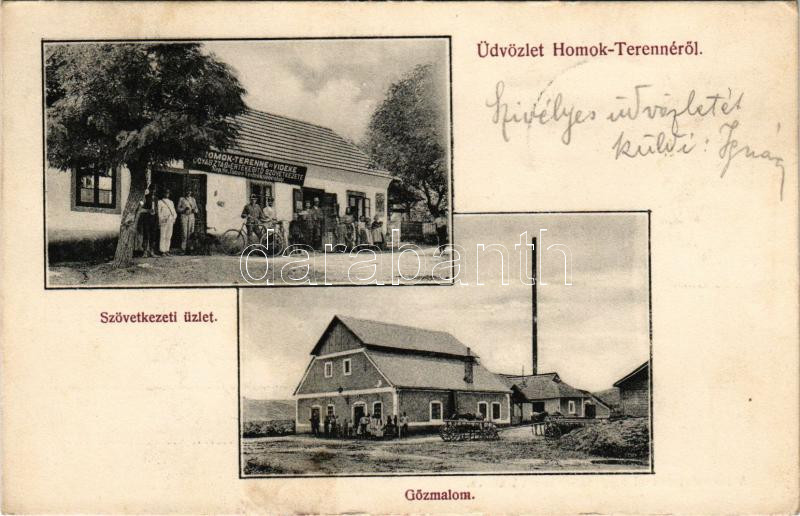 Üdvözlet Homok-Terennéről.
Szivélyes üdvözletét
küldi: Ignác
HOMOK-TERENNE és VIDÉKE
FOGYASZTÁSI-ÉRTÉKESÍTŐ SZÖVETKEZETE
darabanth
Szövetkezeti üzlet.
Gőzmalom.